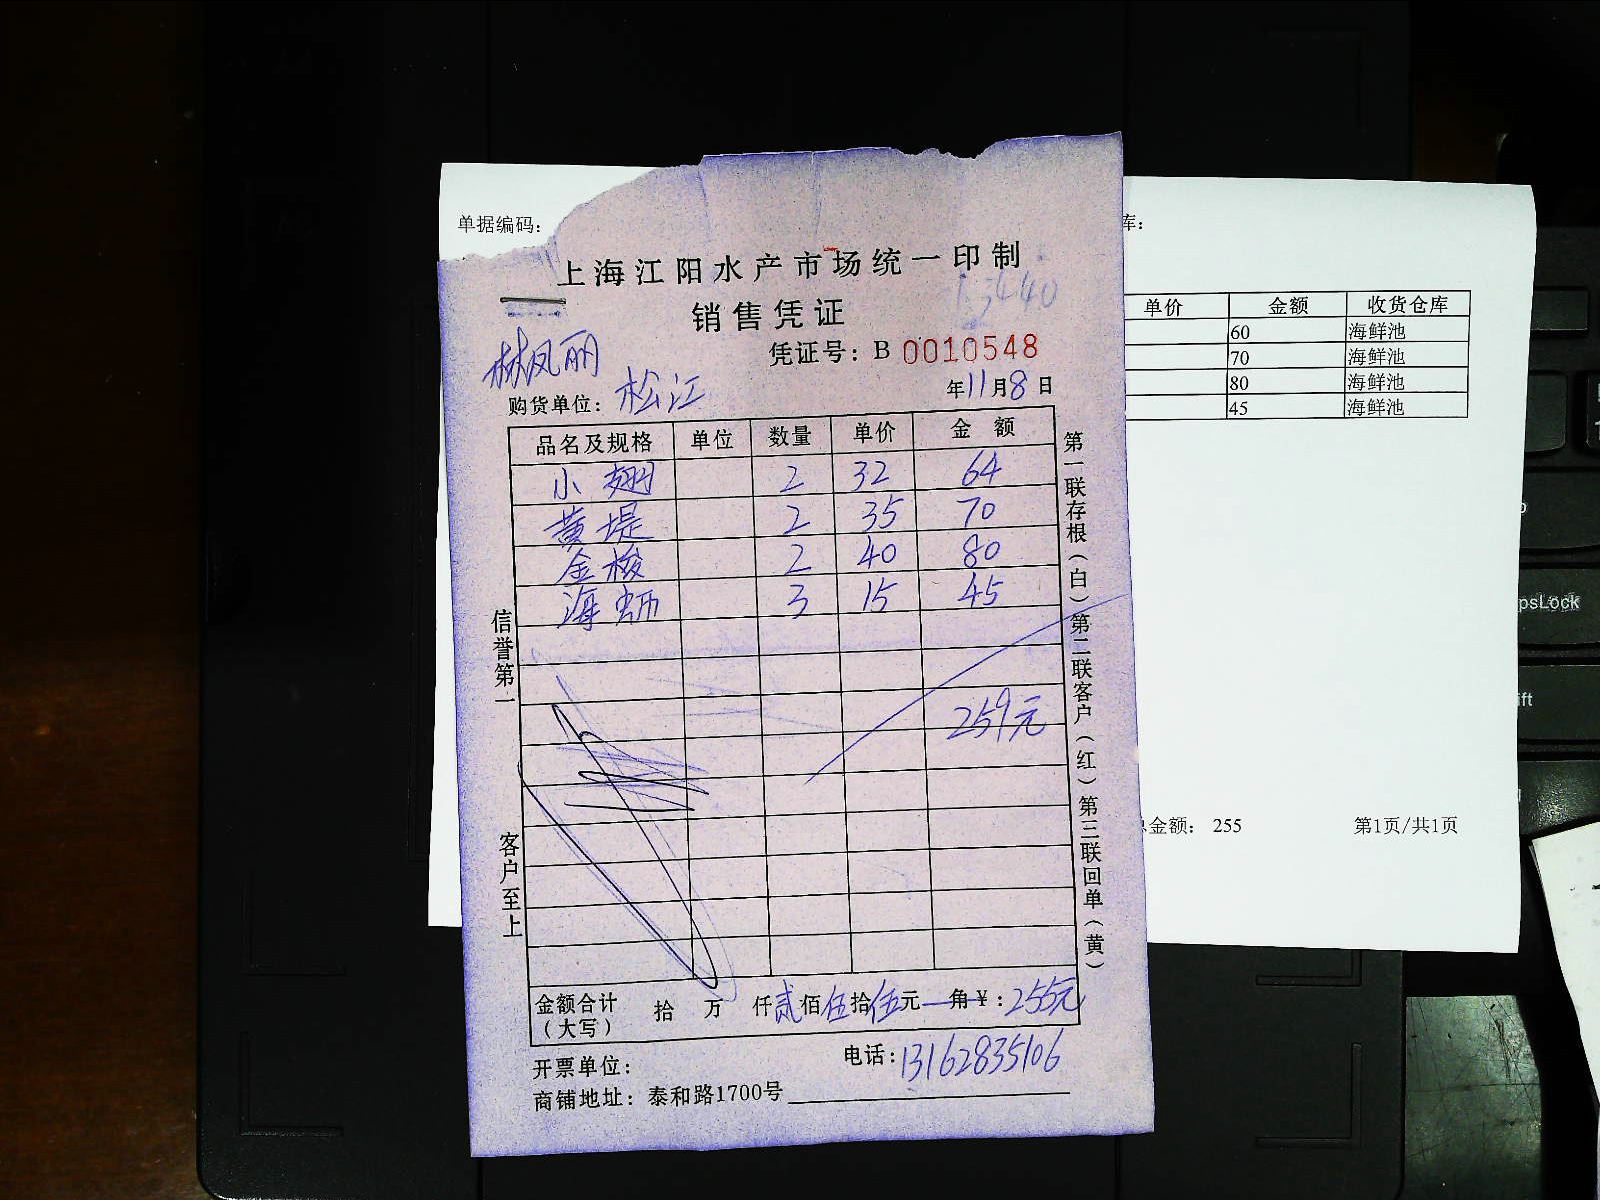 单据编码：
库：
上海江阳水产市场统一印制
销售凭证
凭证号：B 0010548
林凤丽
购货单位：松江 年11月8日
品名及规格 单位 数量 单价 金额
小翅 2 32 64
黄堤 2 35 70
金梭 2 40 80
海蛎 3 15 45
259元
金额合计（大写） 拾 万 仟贰佰伍拾伍元 角￥：255元
开票单位： 电话：13162835106
商铺地址：泰和路1700号
信誉第一
客户至上
第一联存根（白）第二联客户（红）第三联回单（黄）
单价 金额 收货仓库
60 海鲜池
70 海鲜池
80 海鲜池
45 海鲜池
金额： 255 第1页/共1页
psLock
ift